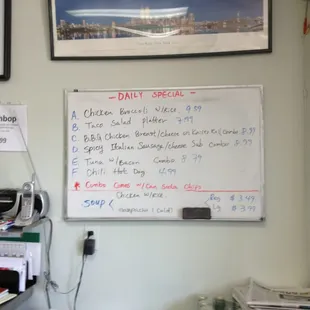 - DAILY SPECIAL -
A. Chicken Broccoli W/Rice. 9.99
B. Taco Salad platter 7.99
C. BBQ Chicken Breast/cheese on Combo
D. Spicy Italian Sausage/cheese Sub Combo
E Tuna w/Bacon Combo
F Chili Hot Dog
* Combo Comes w/Can Soda Chips
Chicken w/Rice
SOUP
Gazpacho (Cold)
$ 3.49
Lg $ 3.99
nbop